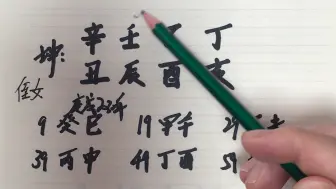 坤: 辛 壬 丁
丑 辰 酉 亥
侄女
9 癸巳 19 甲午 29
39 丙申 49 丁酉 59